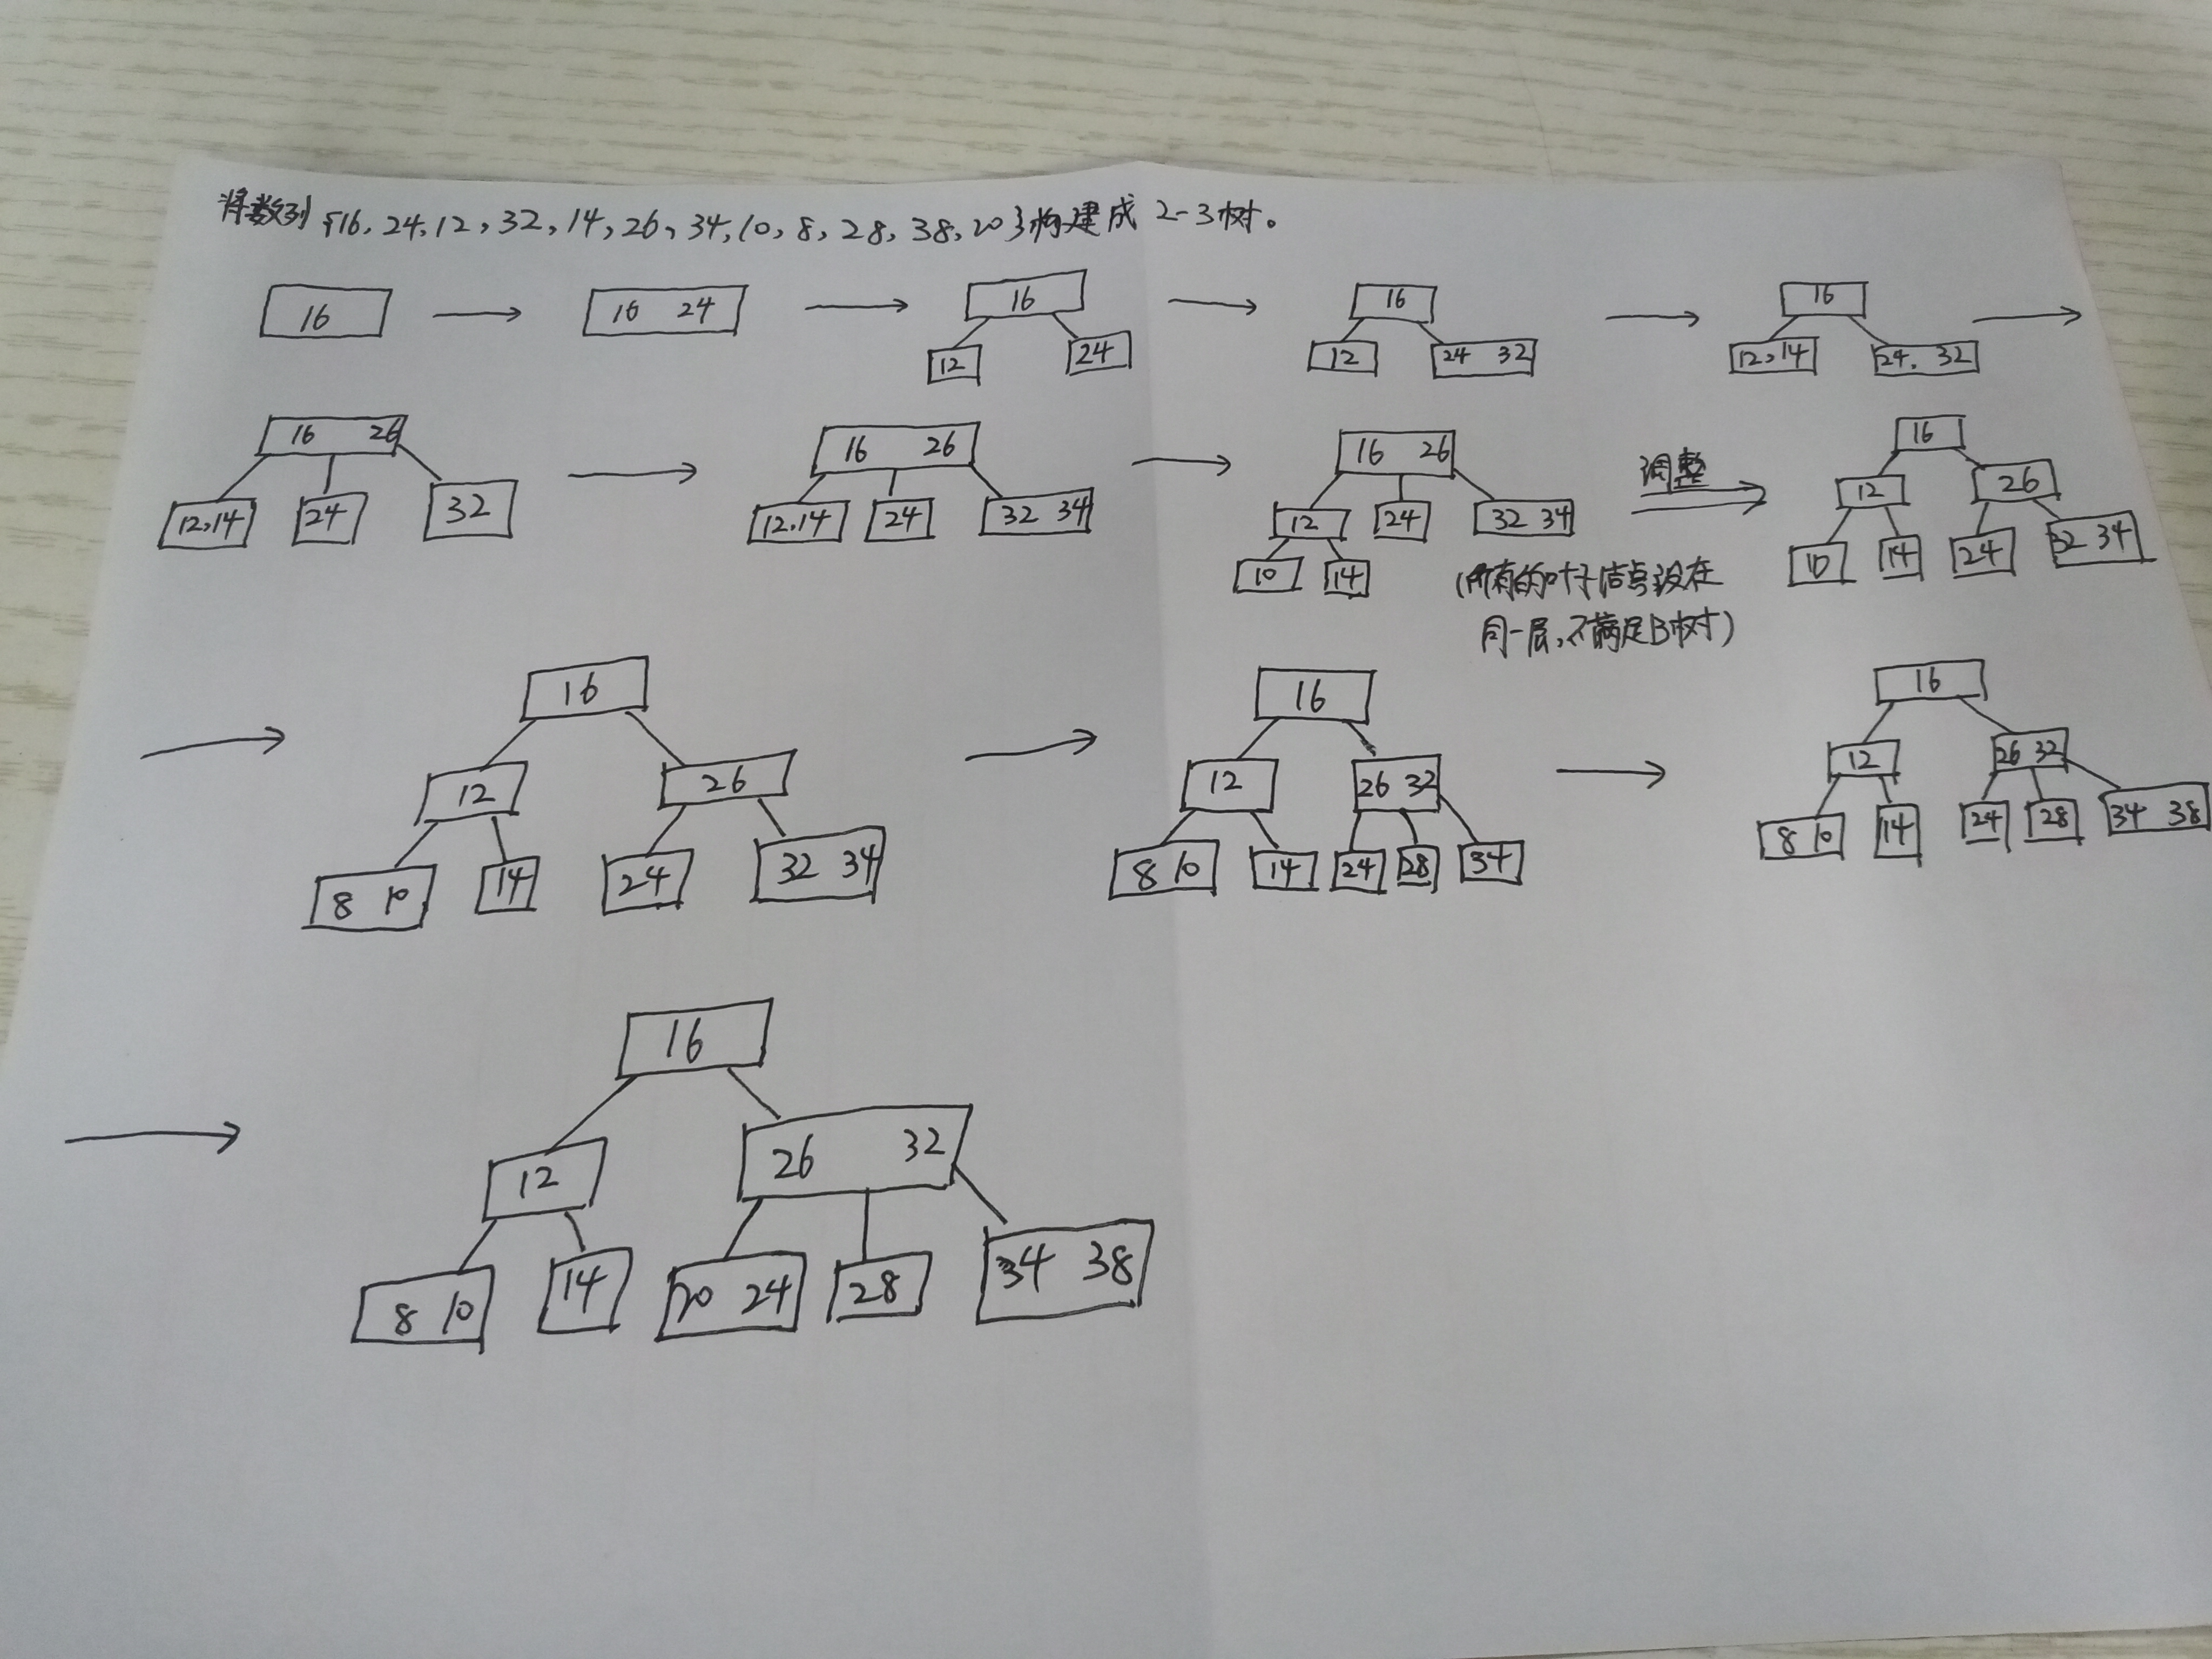 将数列{16,24,12,32,14,26,34,10,8,28,38,20}构建成2-3树。
16
16 24
16
12
24
16
12
24 32
16
12,14
24,32
16 26
12,14
24
32
16 26
12,14
24
32 34
16 26
12
24
32 34
10
14
(所有的叶子结点没在
同一层,不满足B树)
调整
16
12
26
10
14
24
32 34
16
12
26
8 10
14
24
32 34
16
12
26 32
8 10
14
24
28
34
16
12
26 32
8 10
14
24
28
34 38
16
12
26 32
8 10
14
20 24
28
34 38